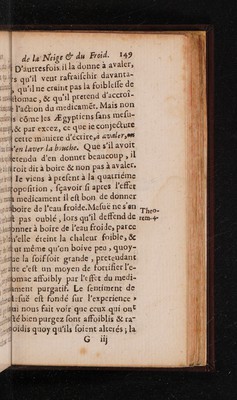 de la Neige & du Froid. 149
D'autresfois il la donne à avaler,
s qu'il veut rafraischir davanta-
, qu'il ne craint pas la foiblesse de
stomac, & qu'il pretend d'accroî-
l'action du medicamẽt. Mais non
s cõme les Ægyptiens sans mesu-
, & par excez, ce que ie conjecture
cette maniere d'écrire, à avaler, ou
'en laver la bouche. Que s'il avoit
retendu d'en donner beaucoup, il
roit dit à boire & non pas à avaler.
Ie viens à present à la quatriéme
roposition, sçavoir si apres l'effet
u medicament il est bon de donner
boire de l'eau froide. Mesué ne s'en
t pas oublié, lors qu'il deffend de
Theo-
rem 4.
onner à boire de l'eau froide, parce
u'elle éteint la chaleur foible, &
ut même qu'on boive peu, quoy-
ue la soif soit grande, pretendant
ue c'est un moyen de fortifier l'e-
omac affoibly par l'effet du medi-
ment purgatif. Le sentiment de
esué est fondé sur l'experience,
ui nous fait voir que ceux qui ont
té bien purgez sont affoiblis & ra-
oidis quoy qu'ils soient alterés; la
G iij